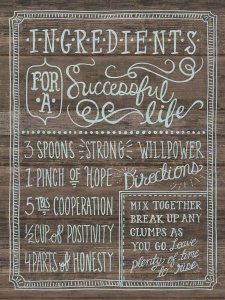 INGREDIENTS
FOR
·A·
Successful
life
3 SPOONS STRONG WILLPOWER
1 PINCH OF HOPE
5 TBS COOPERATION
½ CUP OF POSITIVITY
4 PARTS OF HONESTY
Directions
MIX TOGETHER
BREAK UP ANY
CLUMPS AS
YOU GO. Leave
plenty of time
to rise.